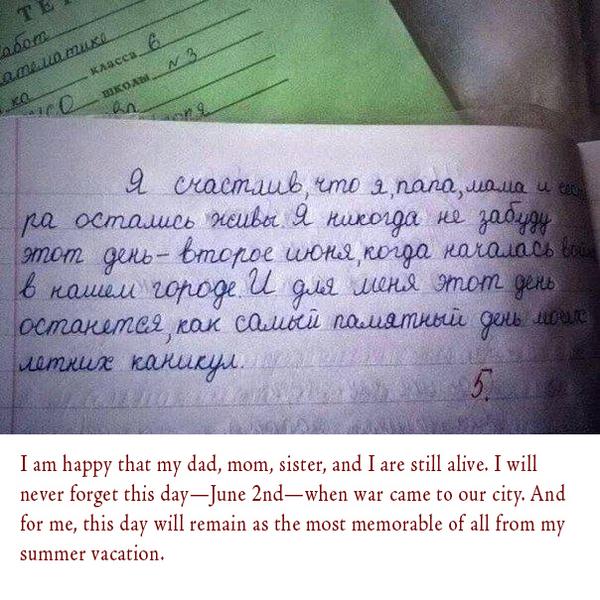 ТЕТ
работ
математике
ка класса 6
школы №3
Я счастлив, что я, папа, мама и сест
ра остались живы. Я никогда не забуду
этот день – второе июня, когда началась война
в нашем городе. И для меня этот день
останется, как самый памятный день моих
летних каникул.
5.
I am happy that my dad, mom, sister, and I are still alive. I will
never forget this day—June 2nd—when war came to our city. And
for me, this day will remain as the most memorable of all from my
summer vacation.